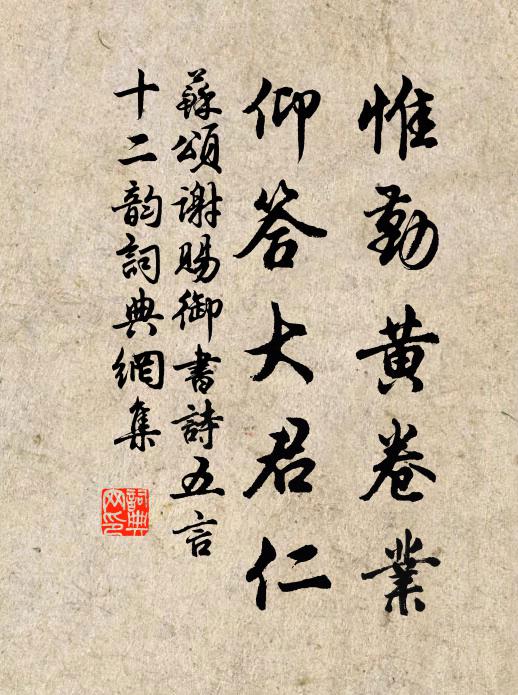 惟勤黄卷業
仰答大君仁
蘇頌謝賜御書詩五言
十二韵詞典網集
詞典网印